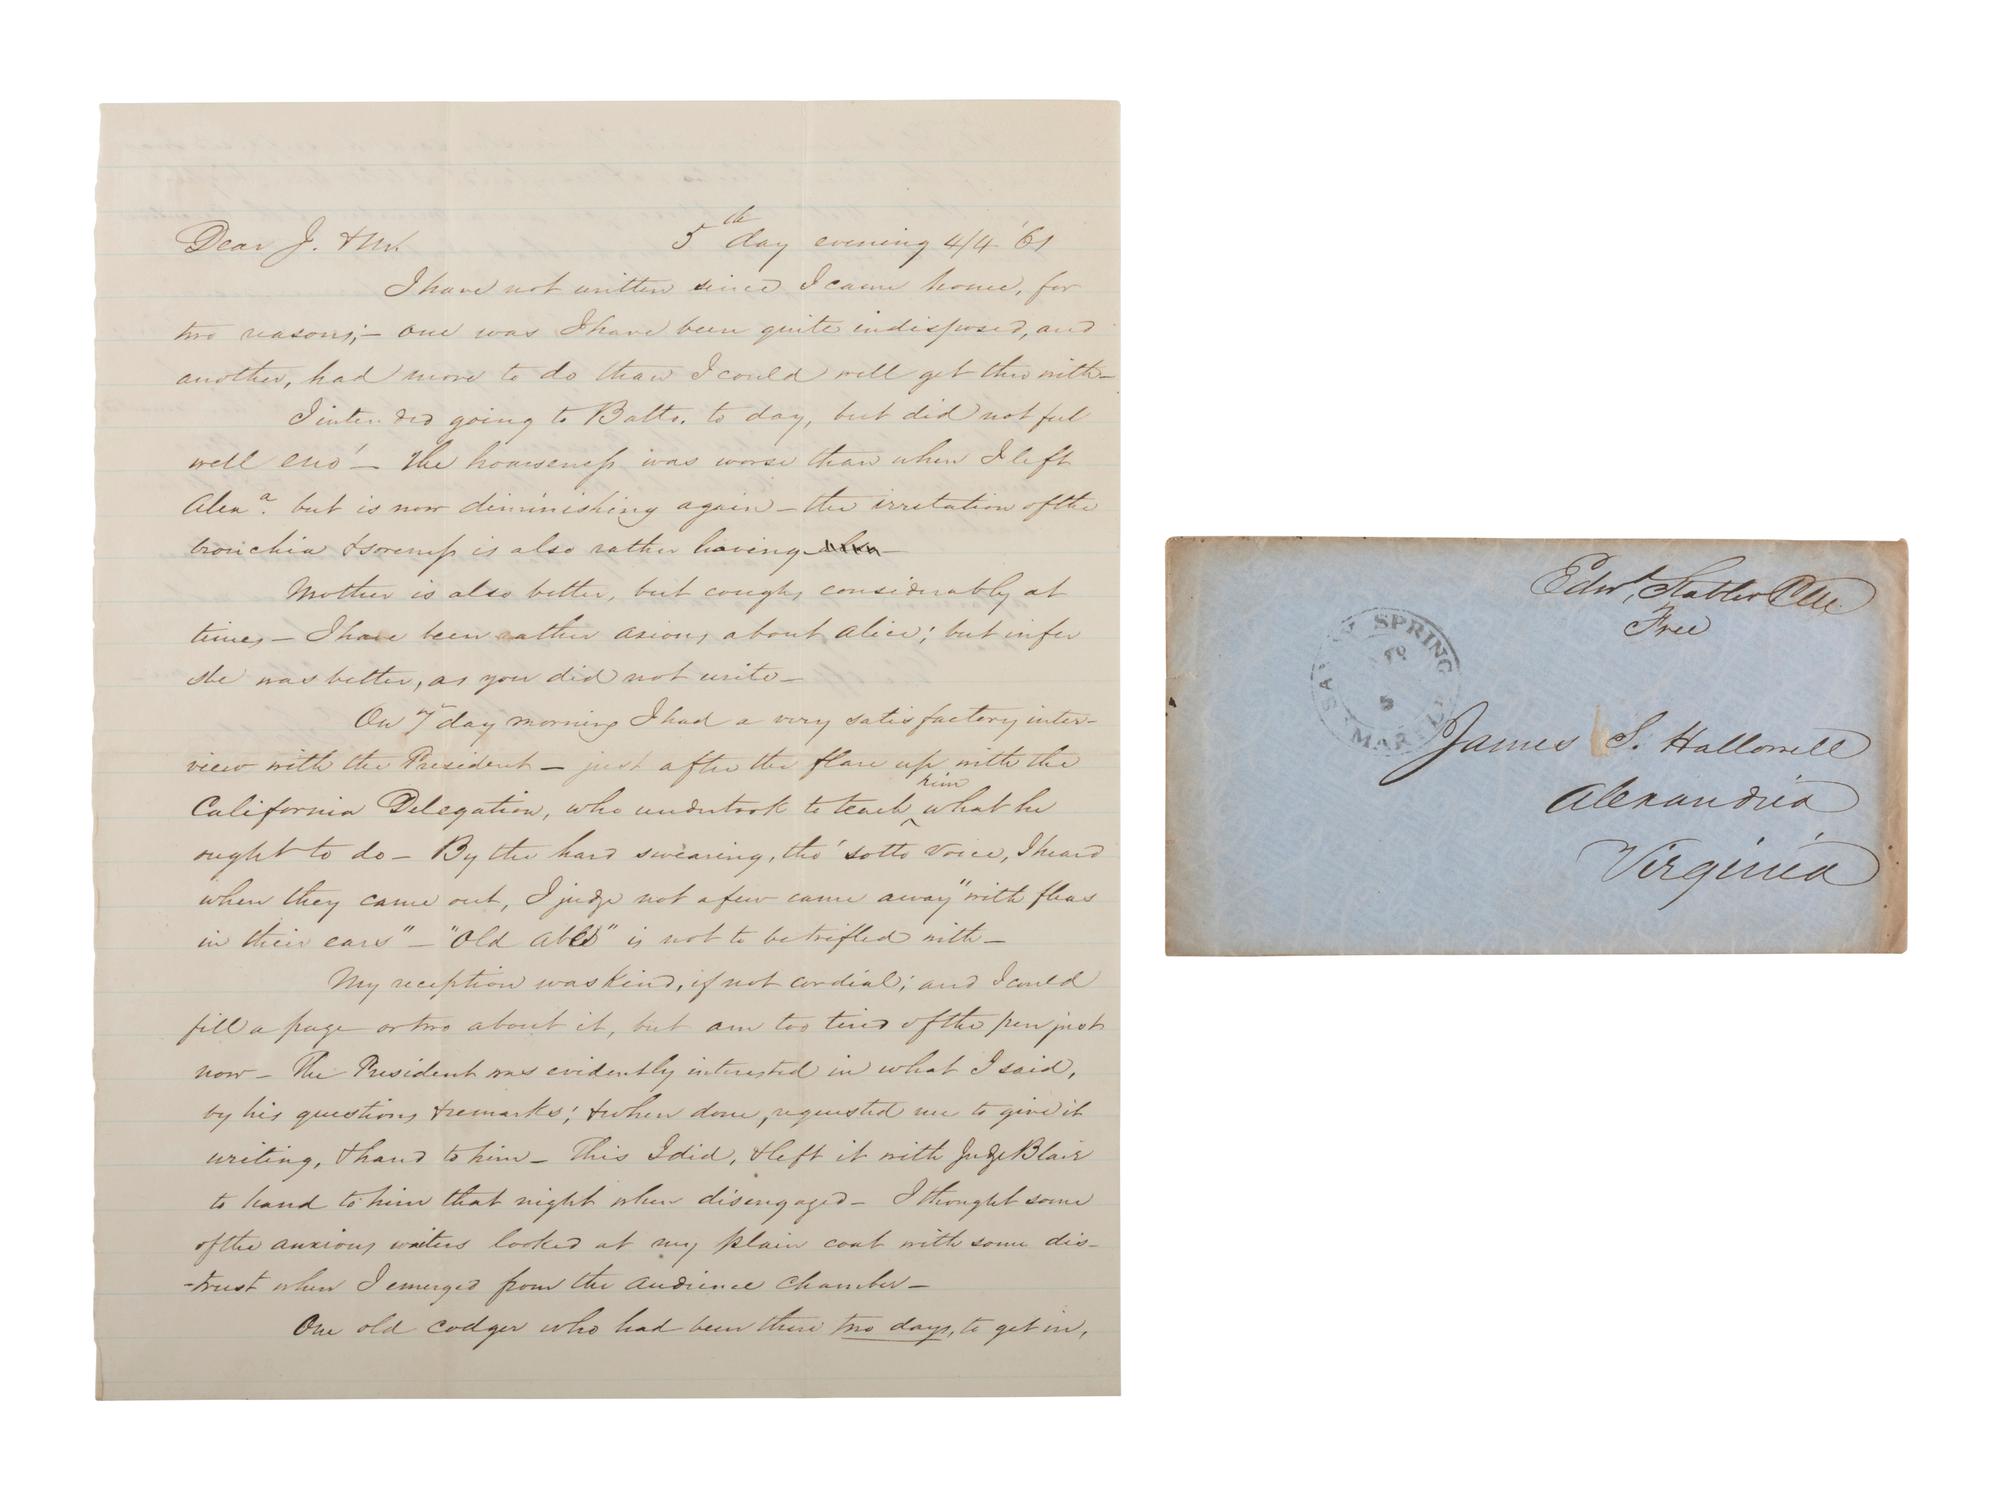 Dear J. & M.
5th day evening 4/4 '61
I have not written since I came home, for
two reasons;— one was I have been quite indisposed, and
another, had more to do than I could well get thro with—
I intended going to Balto. to day, but did not feel
well eno'— the hoarseness was worse than when I left
Alexa. but is now diminishing again— the irritation of the
bronchia & soreness is also rather leaving—
Mother is also better, but coughs considerably at
times— I have been rather axious about Alice; but infer
she was better, as you did not write—
On 7th day morning I had a very satisfactory inter-
view with the President— just after the flare up with the
California Delegation, who undertook to teach him what he
ought to do— By the hard swearing, tho' sotto voice, I heard
when they came out, I judge not a few came away "with fleas
in their ears"— "Old Abe" is not to be trifled with—
My reception was kind, if not cordial; and I could
fill a page or two about it, but am too tired of the pen just
now— The President was evidently interested in what I said,
by his questions & remarks; & when done, requested me to give it
writing, & hand to him— This I did, & left it with Judge Blair
to hand to him that night when disengaged— I thought some
of the anxious waiters looked at my plain coat with some dis-
-trust when I emerged from the audience chamber—
One old codger who had been there two days, to get in,
Edwd. Stabler P.M.
Free
SANDY SPRING
APR
5
MARYLD
James S. Hallowell
Alexandria
Virginia